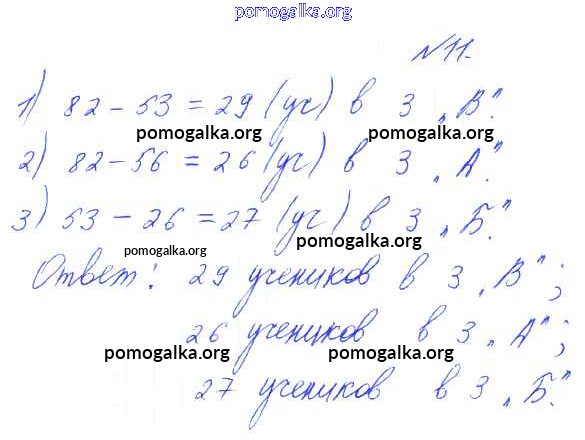 pomogalka.org
№11.
1) 82 - 53 = 29 (уч) в 3 „В".
pomogalka.org pomogalka.org
2) 82 - 56 = 26 (уч) в 3 „А".
3) 53 - 26 = 27 (уч) в 3 „Б".
pomogalka.org pomogalka.org
Ответ: 29 учеников в 3 „В";
26 учеников в 3 „А";
pomogalka.org pomogalka.org
27 учеников в 3 „Б".